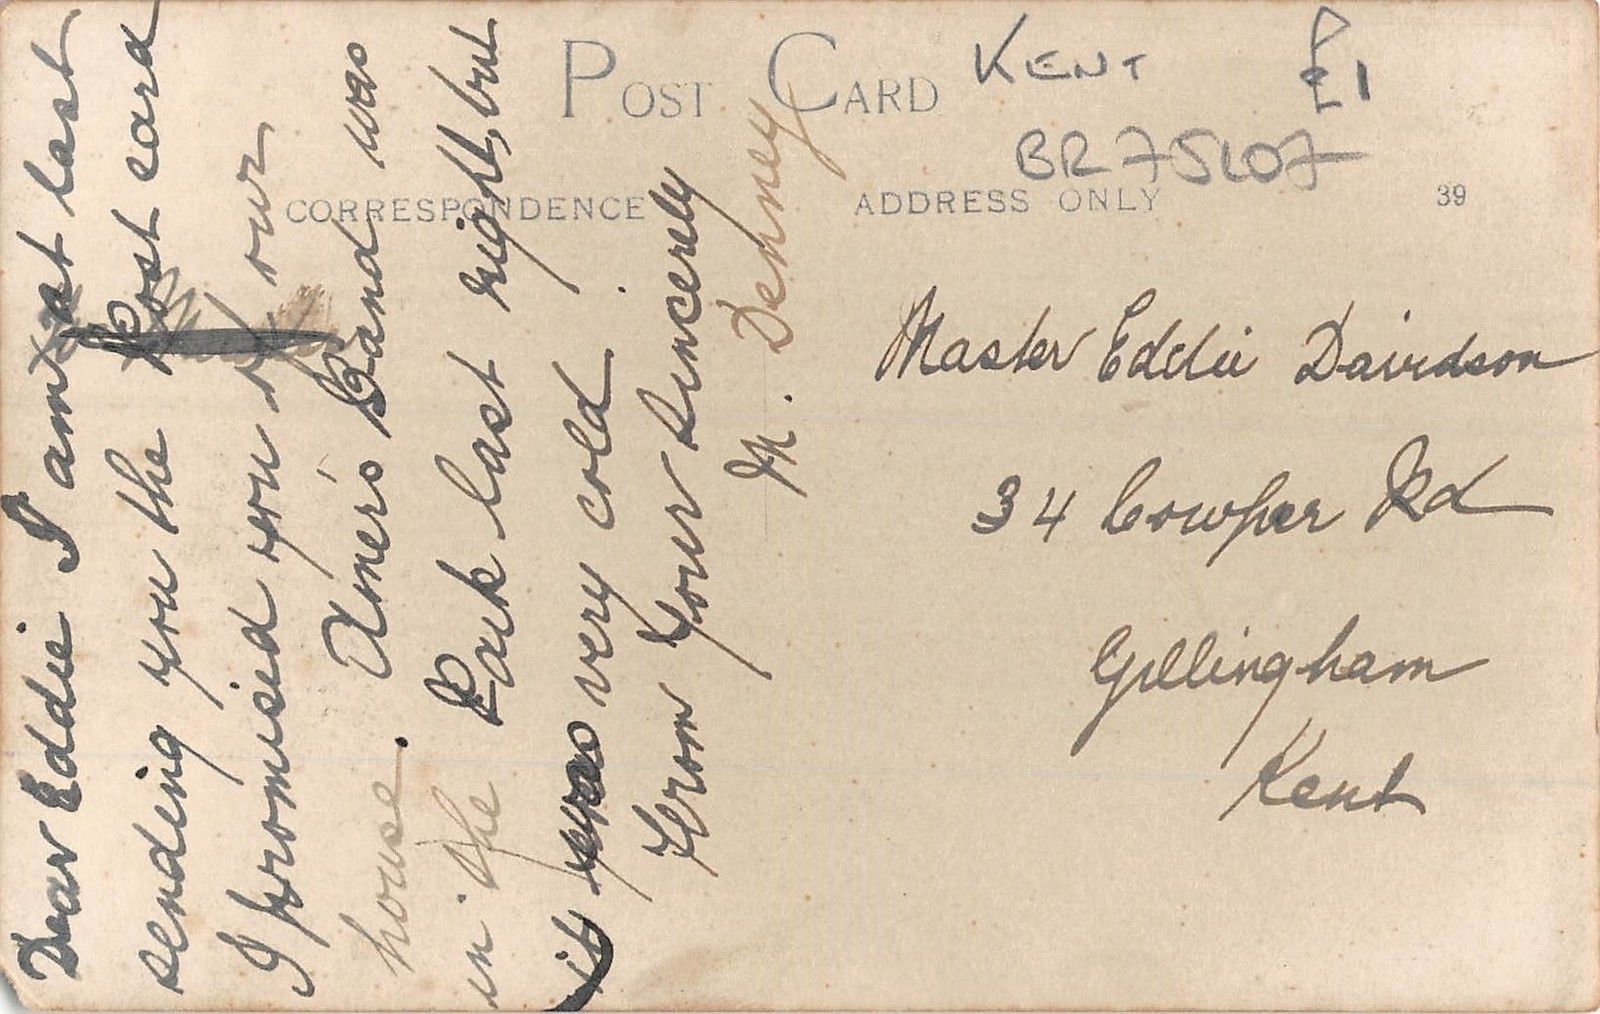 POST CARD
KENT
£1
BR75107
CORRESPONDENCE
ADDRESS ONLY
39
Dear Eddie I am at last
sending you the Post card
I promised you of our
house. Amers Band was
in the Park last night, but
it was very cold.
From Your Sincerely
M. Dehney
Master Eddie Davidson
34 Cowper Rd
Gillingham
Kent